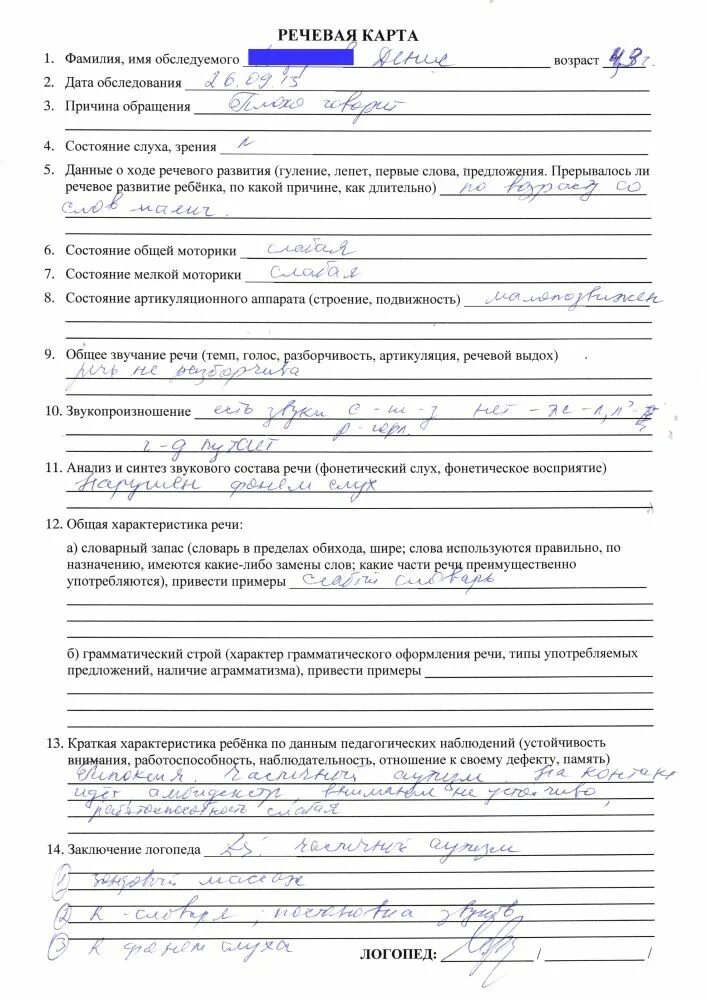 РЕЧЕВАЯ КАРТА
1. Фамилия, имя обследуемого Денис возраст
2. Дата обследования 26.09.13
3. Причина обращения Плохо говорит
4. Состояние слуха, зрения N
5. Данные о ходе речевого развития (гуление, лепет, первые слова, предложения. Прерывалось ли
речевое развитие ребёнка, по какой причине, как длительно) по возрасту со
слов матери
6. Состояние общей моторики слабая
7. Состояние мелкой моторики слабая
8. Состояние артикуляционного аппарата (строение, подвижность) малоподвижен
9. Общее звучание речи (темп, голос, разборчивость, артикуляция, речевой выдох)
речь не разборчива
10. Звукопроизношение есть звуки с - ш - з нет - ж - л, л'
р - горл.
г - д путает
11. Анализ и синтез звукового состава речи (фонетический слух, фонетическое восприятие)
Нарушен фонем слух
12. Общая характеристика речи:
а) словарный запас (словарь в пределах обихода, шире; слова используются правильно, по
назначению, имеются какие-либо замены слов; какие части речи преимущественно
употребляются), привести примеры слабый словарь
б) грамматический строй (характер грамматического оформления речи, типы употребляемых
предложений, наличие аграмматизма), привести примеры
13. Краткая характеристика ребёнка по данным педагогических наблюдений (устойчивость
внимания, работоспособность, наблюдательность, отношение к своему дефекту, память)
Гипоксия. Частичный аутизм. На контакт
идёт, амбидекстр, внимание не устойчиво,
работоспособность слабая
14. Заключение логопеда Ds: частичный аутизм
1 зондовый массаж
2 R - словаря, постановка звуков
3 R фонем слуха
ЛОГОПЕД: / /